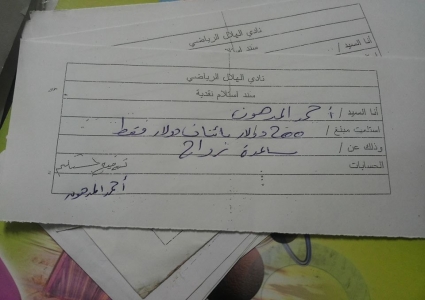 نادي الهلال الرياضي
سند
أنا السيد /
نادي الهلال الرياضي
سند استلام نقدية
أنا السيد / أحمد المدهون
استلمت مبلغ / 200 دولار مائتان دولار فقط
وذلك عن / مساعدة زواج
الحسابات
أحمد المدهون